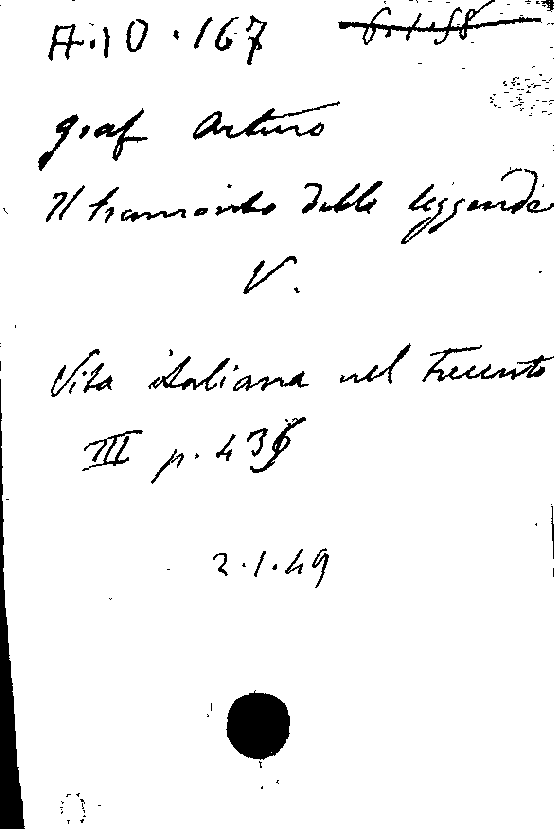 A.10.167 6.1.58
Graf Arturo
Il tramonto delle leggende
V.
Vita italiana nel Trecento
III p. 436
2.1.49